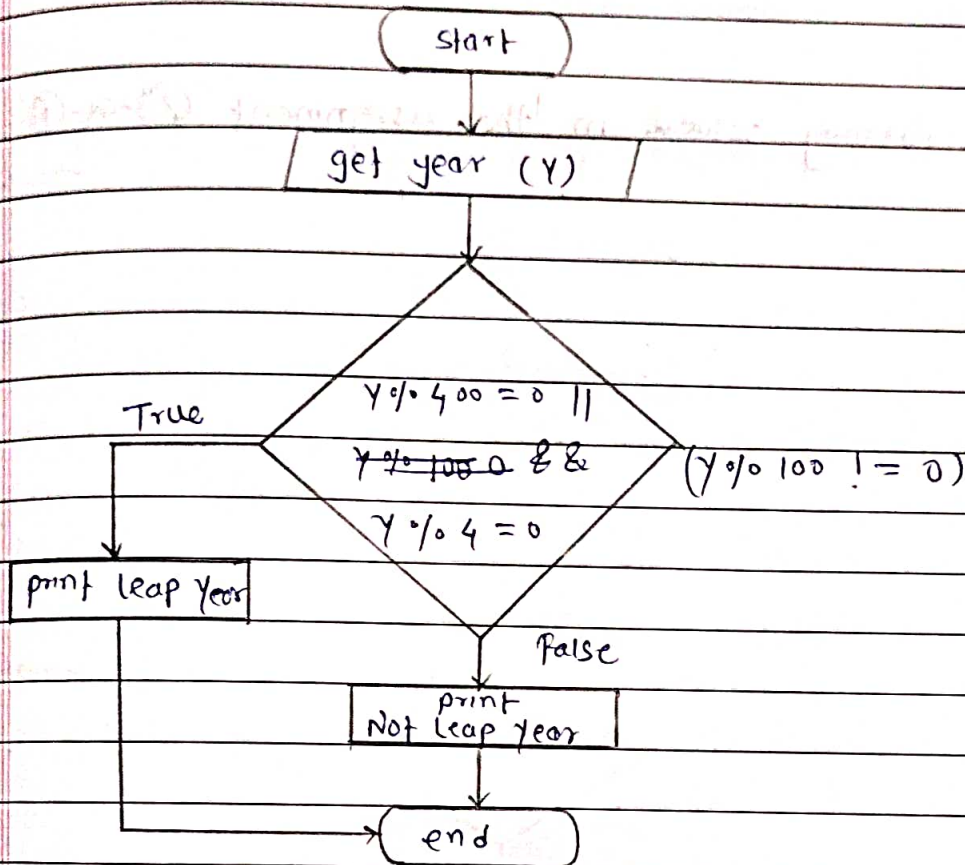 start
get year (Y)
Y % 400 = 0 ||
True
Y % 100 0 && (Y % 100 != 0)
Y % 4 = 0
print leap Year
False
print
Not leap year
end